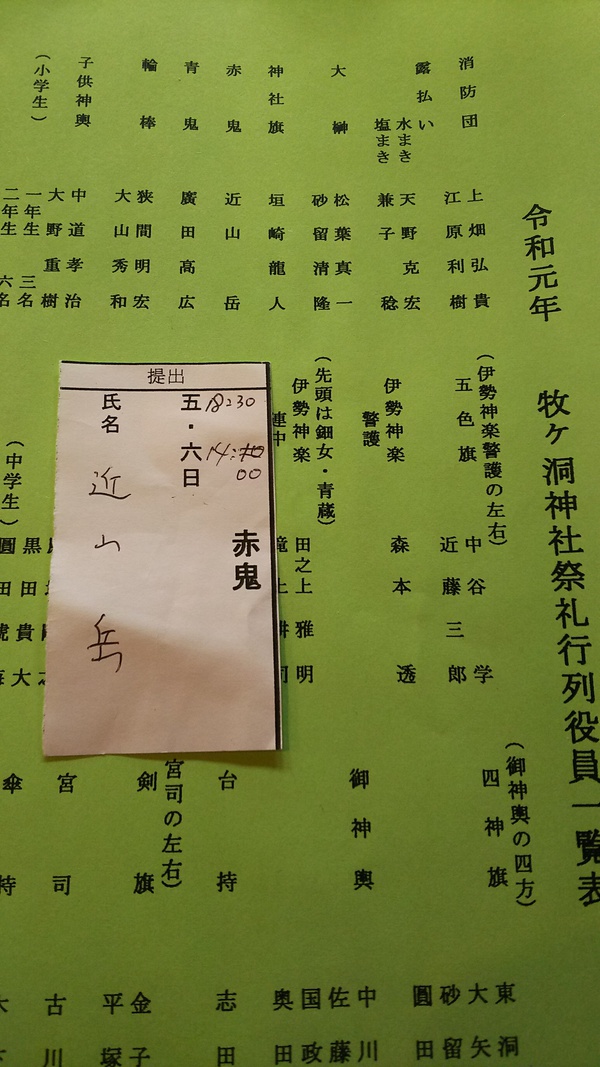 令和元年 牧ヶ洞神社祭礼行列役員一覧表
消防団 上畑弘貴
江原利樹
露払い 水まき 天野克宏
塩まき 兼子稔
大榊 松葉真一
砂留清隆
神社旗 垣崎龍人
赤鬼 近山岳
青鬼 廣田高広
輪棒 狭間明宏
大山秀和
子供神輿 中道孝治
大野重樹
(小学生) 一年生 三名
二年生 六名
(伊勢神楽警護の左右)
五色旗 中谷学
近藤三郎
伊勢神楽 森本透
警護
(先頭は鈿女・青蔵)
伊勢神楽 田之上雅明
連中
(中学生)
提出
赤鬼
五・六日 18:30
14:00
氏名 近山岳
(御神輿の四方)
四神旗 東洞
大矢
砂留
圓田
御神輿 中川
佐藤
国政
奥田
台持 志田
宮司の左右)
剣旗 金子
平塚
宮司 古川
傘持